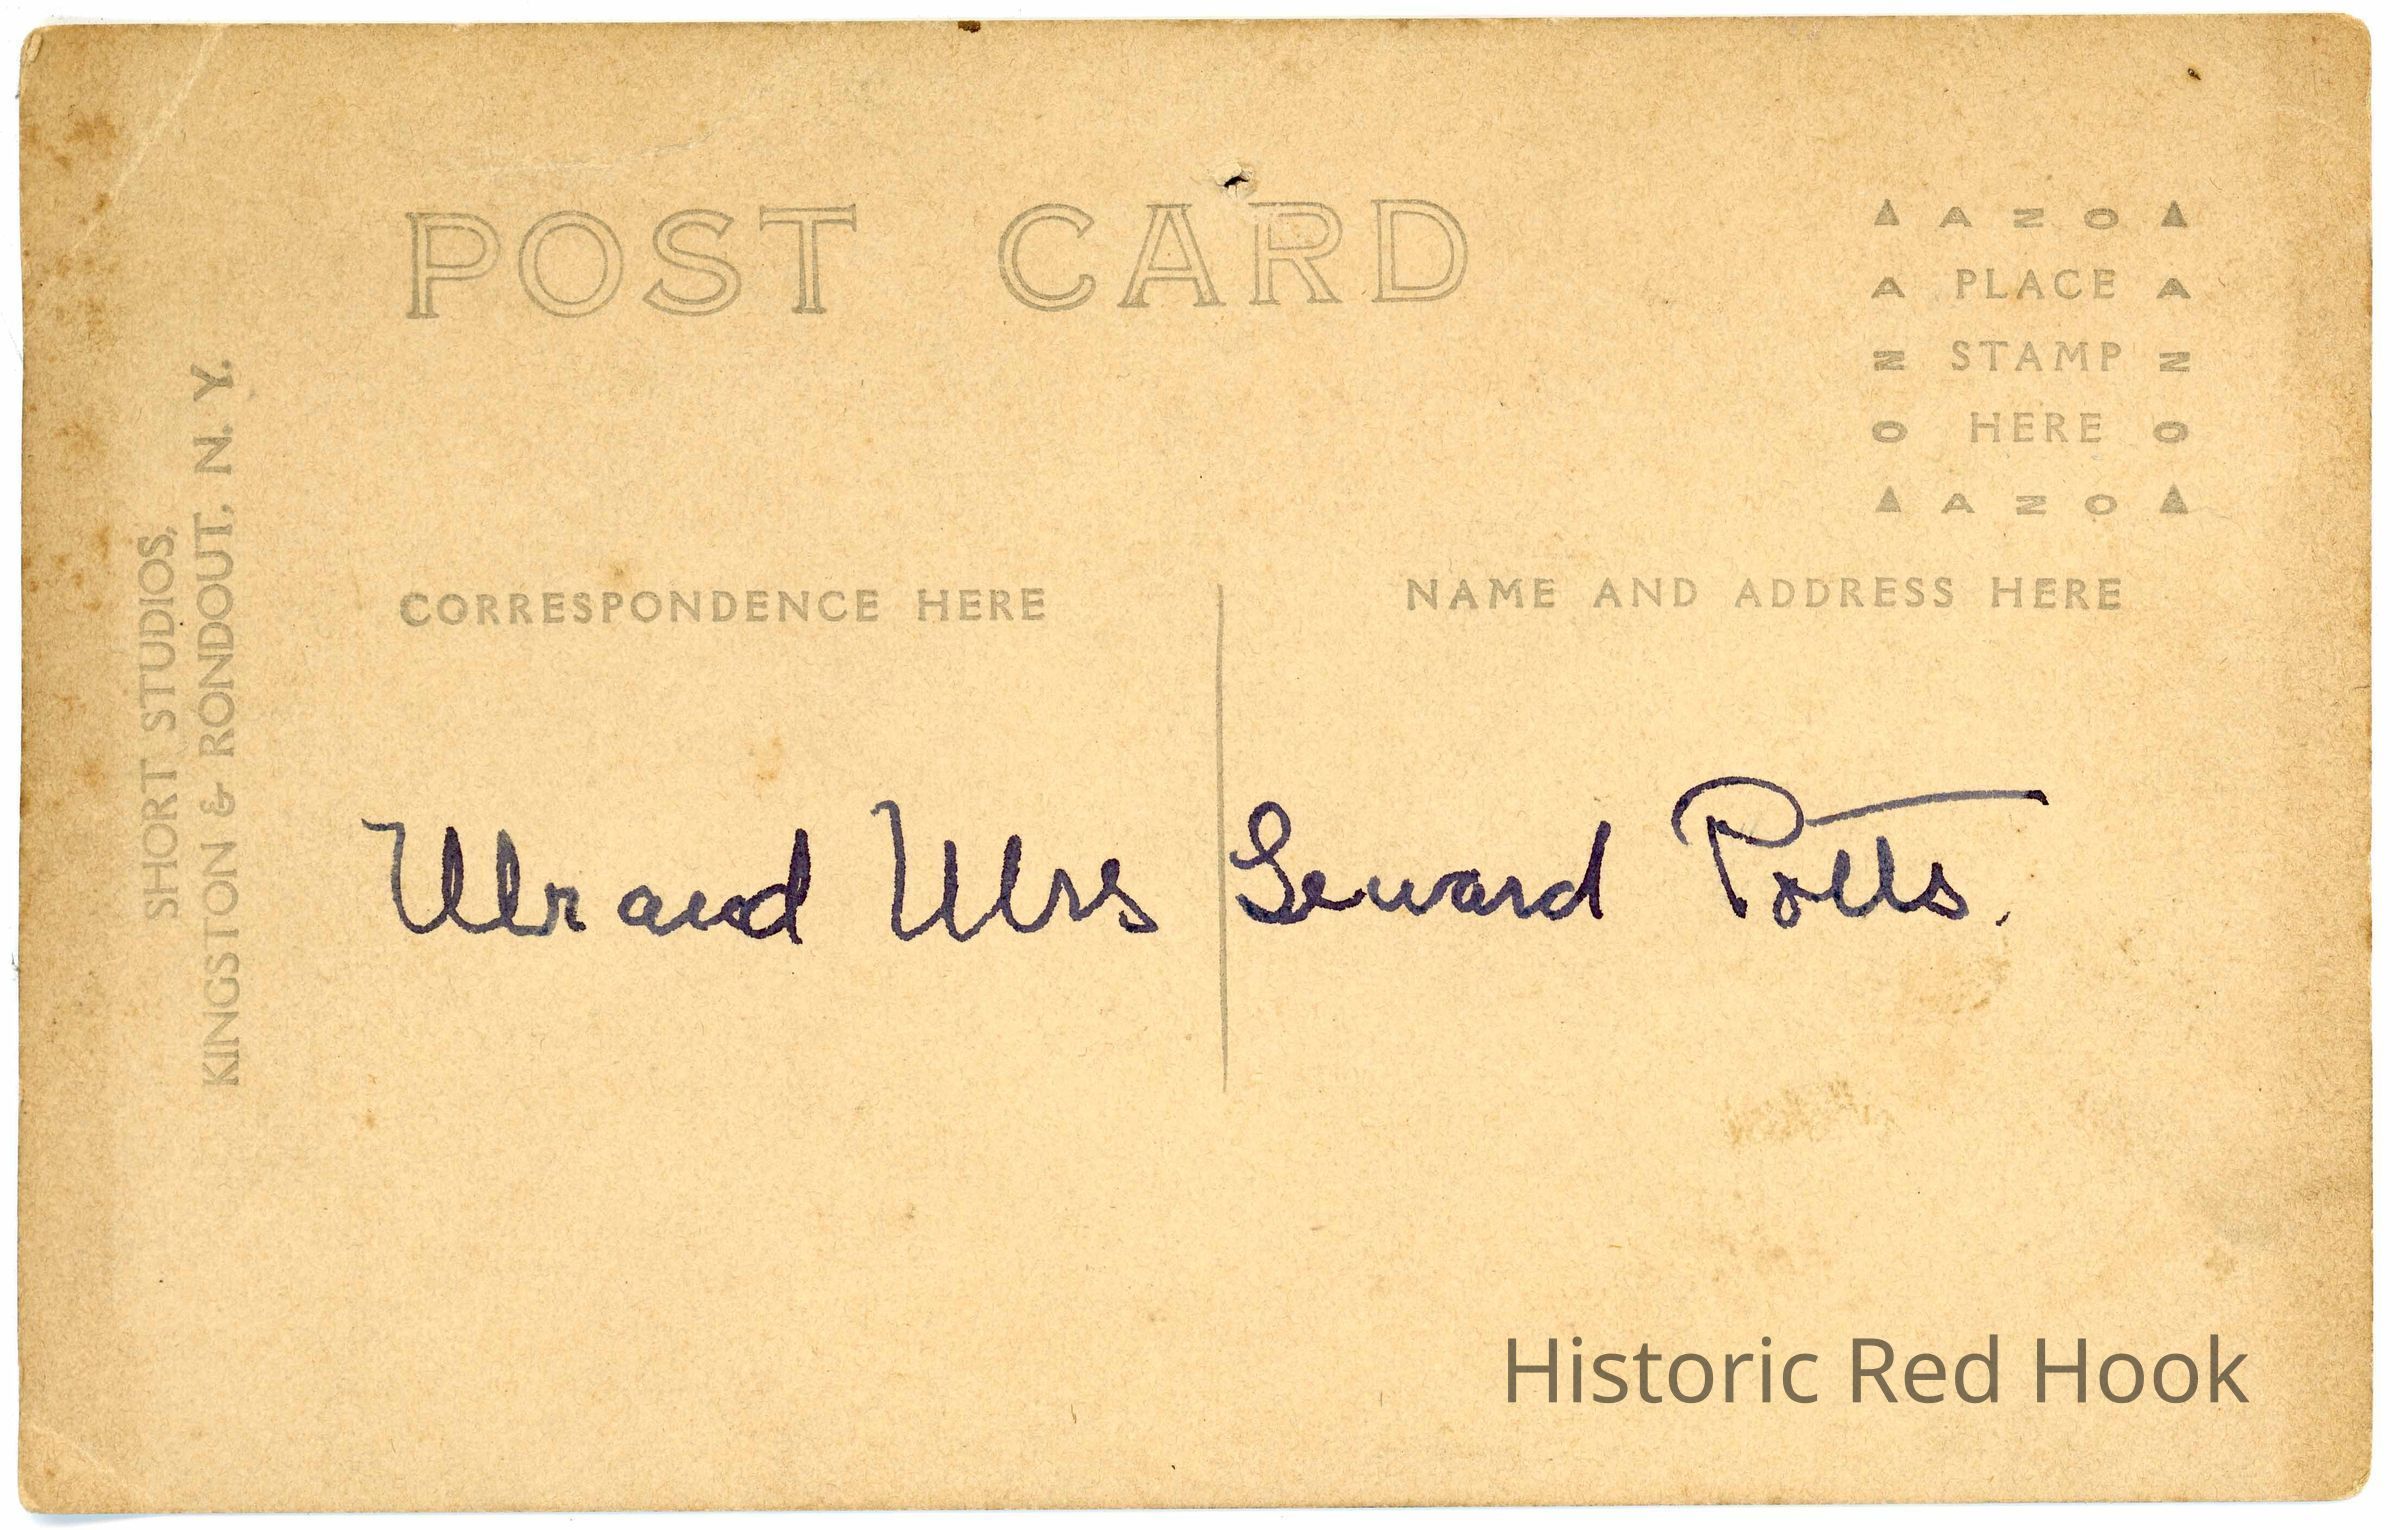 POST CARD
▲ A N O ▲
A PLACE A
N STAMP N
O HERE O
▲ A N O ▲
SHORT STUDIOS,
KINGSTON & RONDOUT, N. Y.
CORRESPONDENCE HERE
NAME AND ADDRESS HERE
Mr and Mrs Seward Potts.
Historic Red Hook